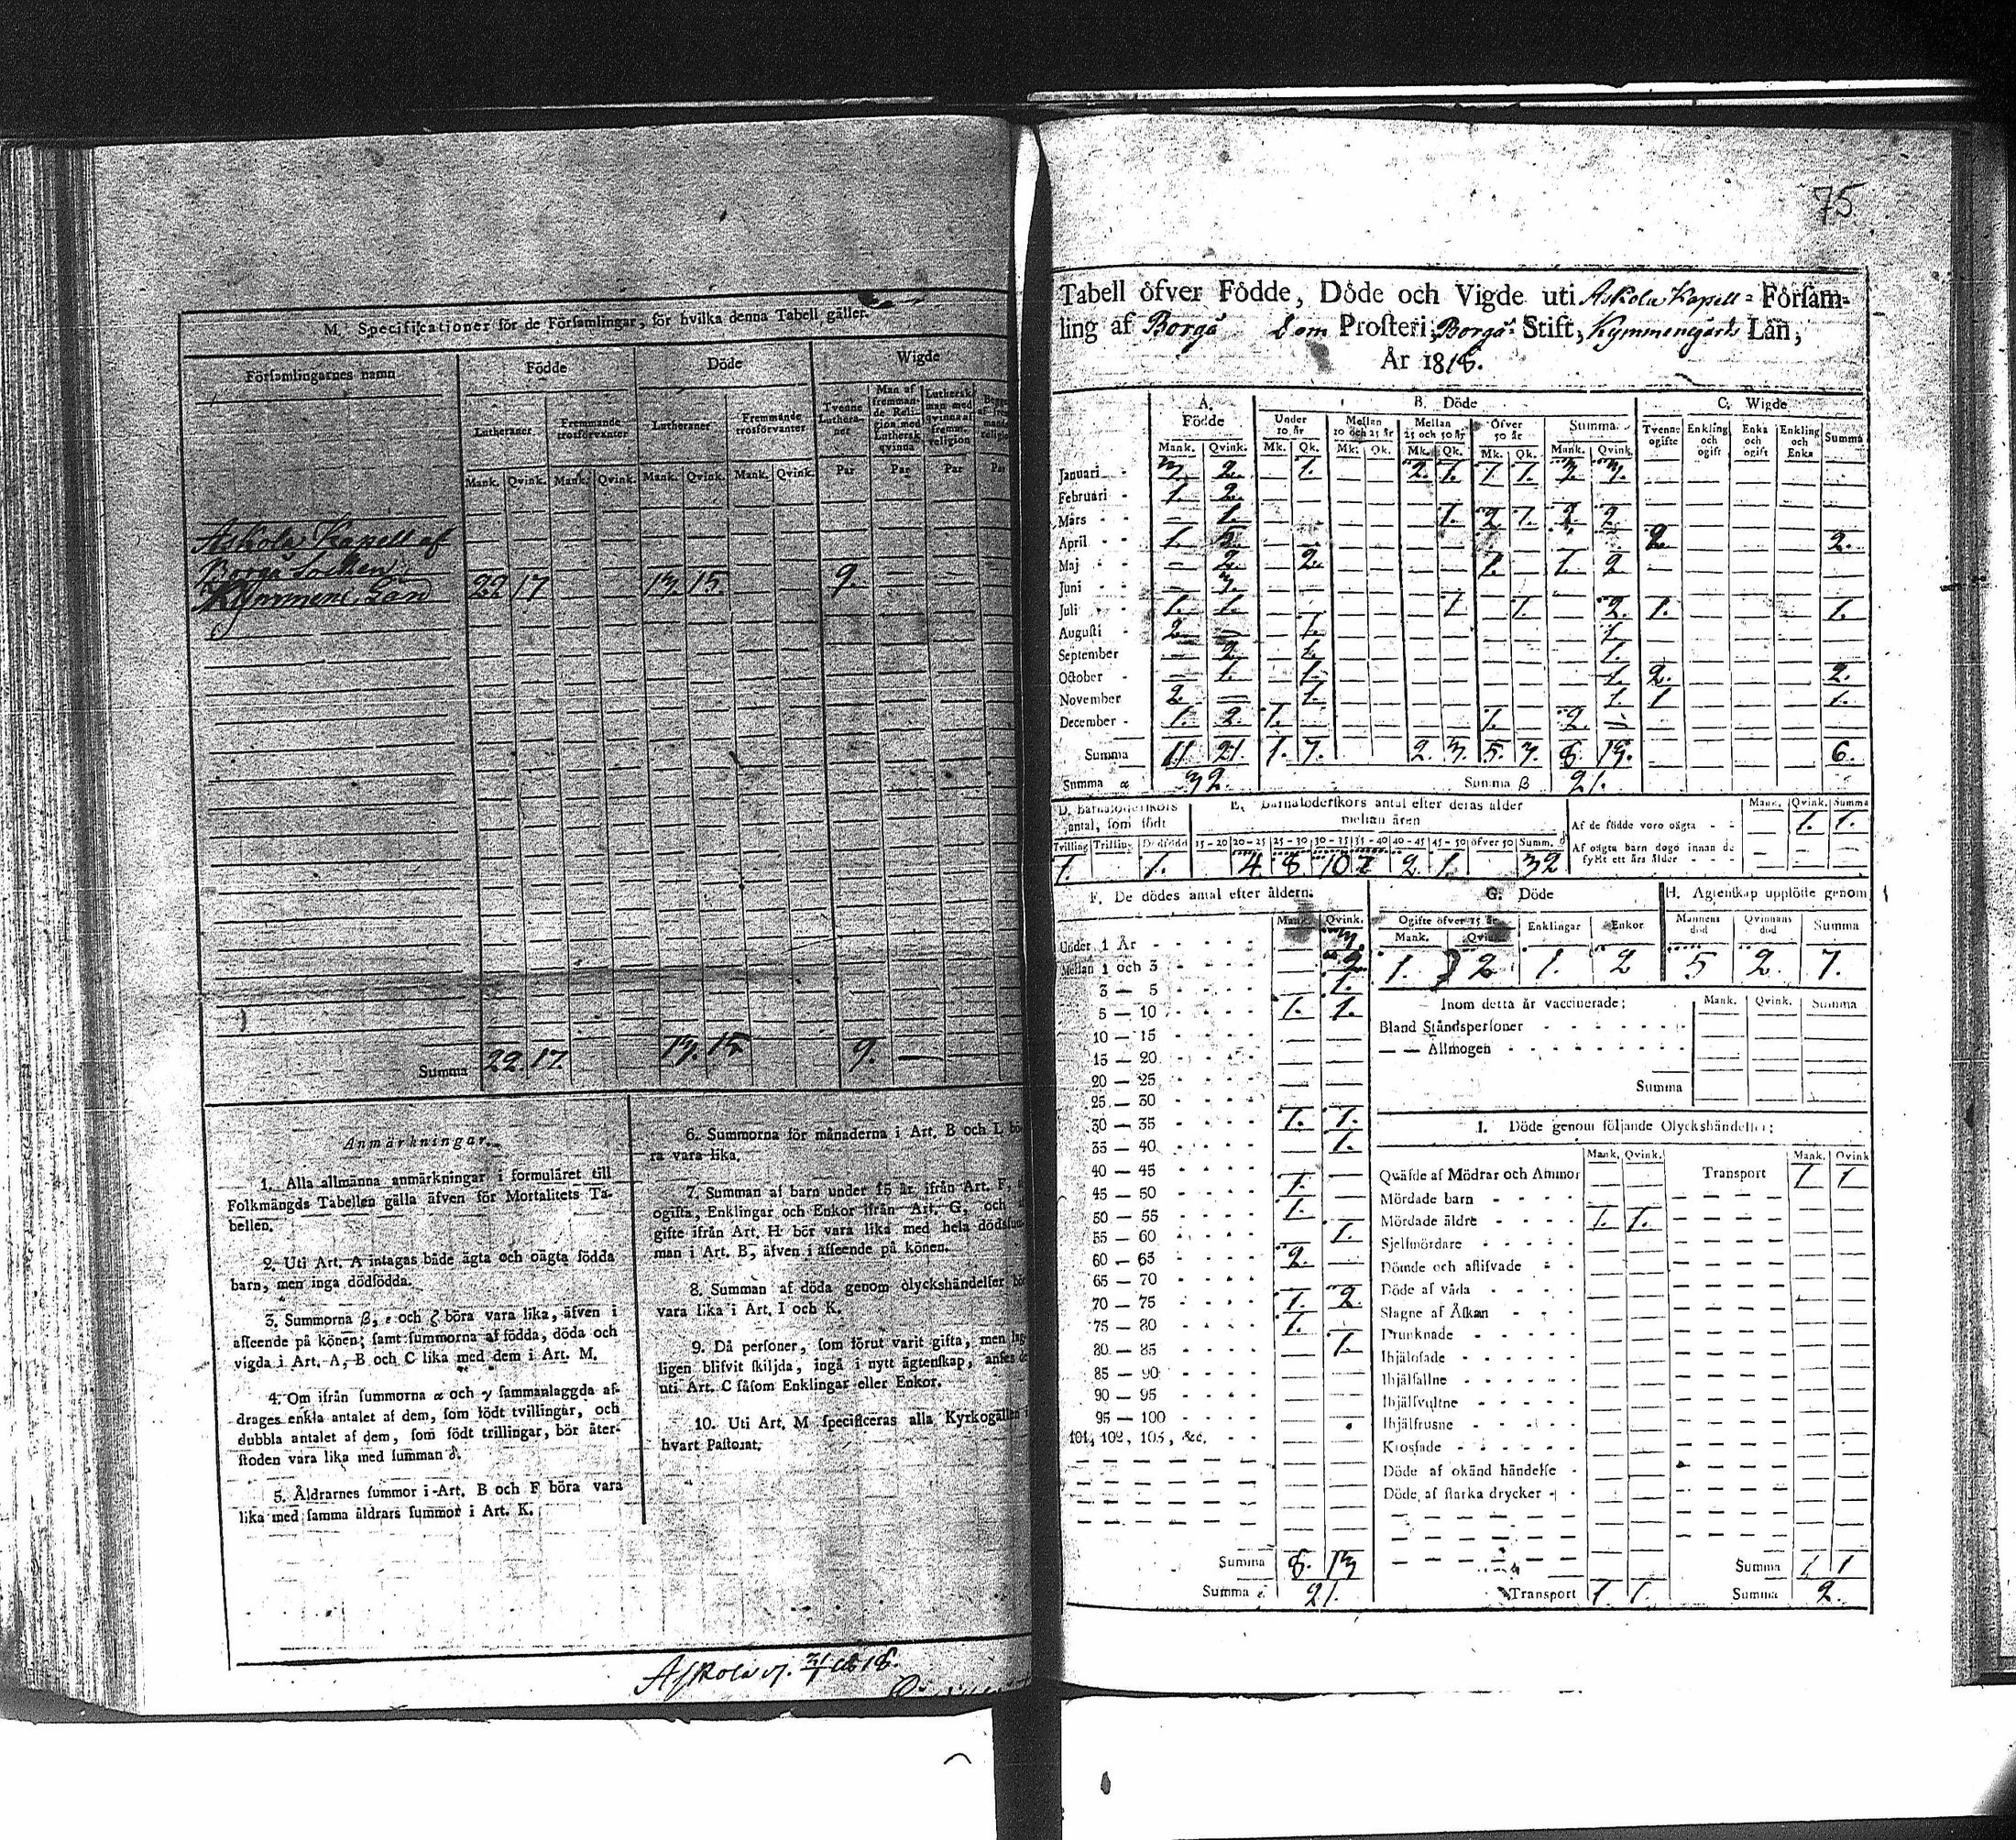 M. Specificationer för de Församlingar, för hvilka denna Tabell gäller.
Församlingarnes namn Födde Döde Wigde
Lutheraner Fremmande trosförvanter Lutheraner Fremmande trosförvanter Tvenne Lutheraner Man af fremmande Religion med Luthersk qvinna Luthersk man med qvinna af fremm. religion
Mank. Qvink. Mank. Qvink. Mank. Qvink. Mank. Qvink. Par Par Par Par
Askola Kapell af
Borgå Socken
Kymmene Län 22 17 13. 15. 9.
Summa 22. 17. 13. 15 9. —
Anmärkningar.
1. Alla allmänna anmärkningar i formuläret till
Folkmängds Tabellen gälla äfven för Mortalitets Ta-
bellen.
2. Uti Art. A intagas både ägta och oägta födda
barn, men inga dödfödda.
3. Summorna β, ε och ζ böra vara lika, äfven i
afseende på könen; samt summorna af födda, döda och
vigda i Art. A, B och C lika med dem i Art. M.
4. Om ifrån summorna α och γ sammanlaggda af-
drages enkla antalet af dem, som födt tvillingar, och
dubbla antalet af dem, som födt trillingar, bör åter-
stoden vara lika med summan δ.
5. Åldrarnes summor i Art. B och F böra vara
lika med samma åldrars summor i Art. K.
6. Summorna för månaderna i Art. B och L bö-
ra vara lika.
7. Summan af barn under 15 år ifrån Art. F,
ogifta, Enklingar och Enkor ifrån Art. G, och
gifte ifrån Art. H bör vara lika med hela dödssum-
man i Art. B, äfven i afseende på könen.
8. Summan af döda genom olyckshändelser bör
vara lika i Art. I och K.
9. Då personer, som förut varit gifta, men lag-
ligen blifvit skiljda, ingå i nytt ägtenskap, anses de
uti Art. C såsom Enklingar eller Enkor.
10. Uti Art. M specificeras alla Kyrkogällen i
hvart Pastorat.
75
Tabell öfver Födde, Döde och Vigde uti Askola Kapell- Församl-
ling af Borgå Dom Prosteri, Borgå Stift, Kymmenegårds Län,
År 1818.
A. Födde B. Döde C. Wigde
Under 10 år Mellan 10 och 25 år Mellan 25 och 50 år Öfver 50 år Summa. Tvenne ogifte Enkling och ogift Enka och ogift Enkling och Enka Summa
Mank. Qvink. Mk. Qk. Mk. Qk. Mk. Qk. Mk. Qk. Mank. Qvink.
Januari 3. 2. — 1. 2. 1. 1. 1. 3. 3.
Februari 1. 2.
Mars — 1. 1. 2 1. 2 2
April 1. 2. 2. 2.
Maj — 2. 2. 1. 1. 2
Juni — 3.
Juli 1. 1. 1 1. 2. 1. 1.
Augusti 2 — 1. 1
September — 2. 1. 1.
October — 1. 1. 1. 2. 2.
November 2. — 1. 1. 1 1.
December 1. 2. 1. 1. 2. —
Summa 11 21. 1. 7. 2. 3. 5. 3. 8. 13. 6.
Summa α 32. Summa β 21.
D. Barnaföderskors antal, som födt E. Barnaföderskors antal efter deras ålder mellan åren Mank. Qvink. Summa
Af de födde voro oägta — 1. 1.
Af oägta barn dogo innan de fyllt ett års ålder
Tvilling Trilling Dödfödd 15 - 20 20 - 25 25 - 30 30 - 35 35 - 40 40 - 45 45 - 50 öfver 50 Summ. δ
1. 1. 4 8 10 7 2 1. 32
F. De dödes antal efter åldern: G. Döde H. Ägtenskap upplöste genom
Mank. Qvink. Ogifte öfver 15 år Enklingar Enkor Mannens död Qvinnans död Summa
Mank. Qvink.
1. 2 1. 2 5 2. 7.
Under 1 År — 3.
Mellan 1 och 3 — 2
3 — 5 — 1.
5 — 10 1. 1.
10 — 15
15 — 20
20 — 25
25 — 30
30 — 35 1. 1.
35 — 40 — 1.
40 — 45
45 — 50 1.
50 — 55 1.
55 — 60 — 1.
60 — 65 2.
65 — 70
70 — 75 1. 2.
75 — 80 1.
80 — 85 — 1.
85 — 90
90 — 95
95 — 100
101, 102, 103, &c.
Summa 8. 13
Summa ε. 21.
Inom detta år vaccinerade: Mank. Qvink. Summa
Bland Ståndspersoner
— — Allmogen
Summa
I. Döde genom följande Olyckshändelser:
Mank. Qvink. Mank. Qvink
Qväfde af Mödrar och Ammor Transport 1 1
Mördade barn
Mördade äldre 1. 1.
Sjelfmördare
Dömde och aflifvade
Döde af våda
Slagne af Åskan
Drunknade
Ihjälosade
Ihjälfallne
Ihjälsvultne
Ihjälfrusne
Krossade
Döde af okänd händelse
Döde af starka drycker
Summa 1 1
Transport 1. 1. Summa 2.